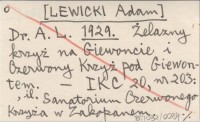 [LEWICKI Adam]
Dr. A. L. 1929. Żelazny
krzyż na Giewoncie i
Czerwony Krzyż pod Giewon-
tem. — IKC 20, nr 203:
, il. Sanatorium Czerwonego
Krzyża w Zakopanem